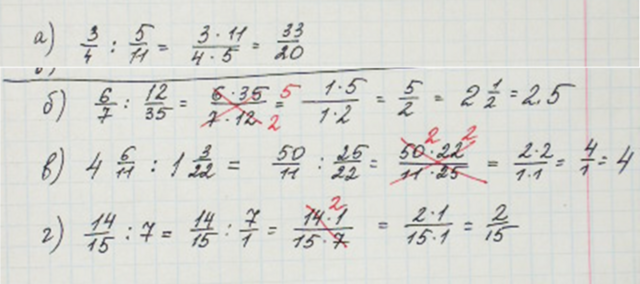 а) 3/4 : 5/11 = (3 · 11)/(4 · 5) = 33/20
б) 6/7 : 12/35 = (6 · 35)/(7 · 12) 5 2 = (1 · 5)/(1 · 2) = 5/2 = 2 1/2 = 2,5
в) 4 6/11 : 1 3/22 = 50/11 : 25/22 = 2 2 (50 · 22)/(11 · 25) = (2 · 2)/(1 · 1) = 4/1 = 4
г) 14/15 : 7 = 14/15 : 7/1 = 2 (14 · 1)/(15 · 7) = (2 · 1)/(15 · 1) = 2/15